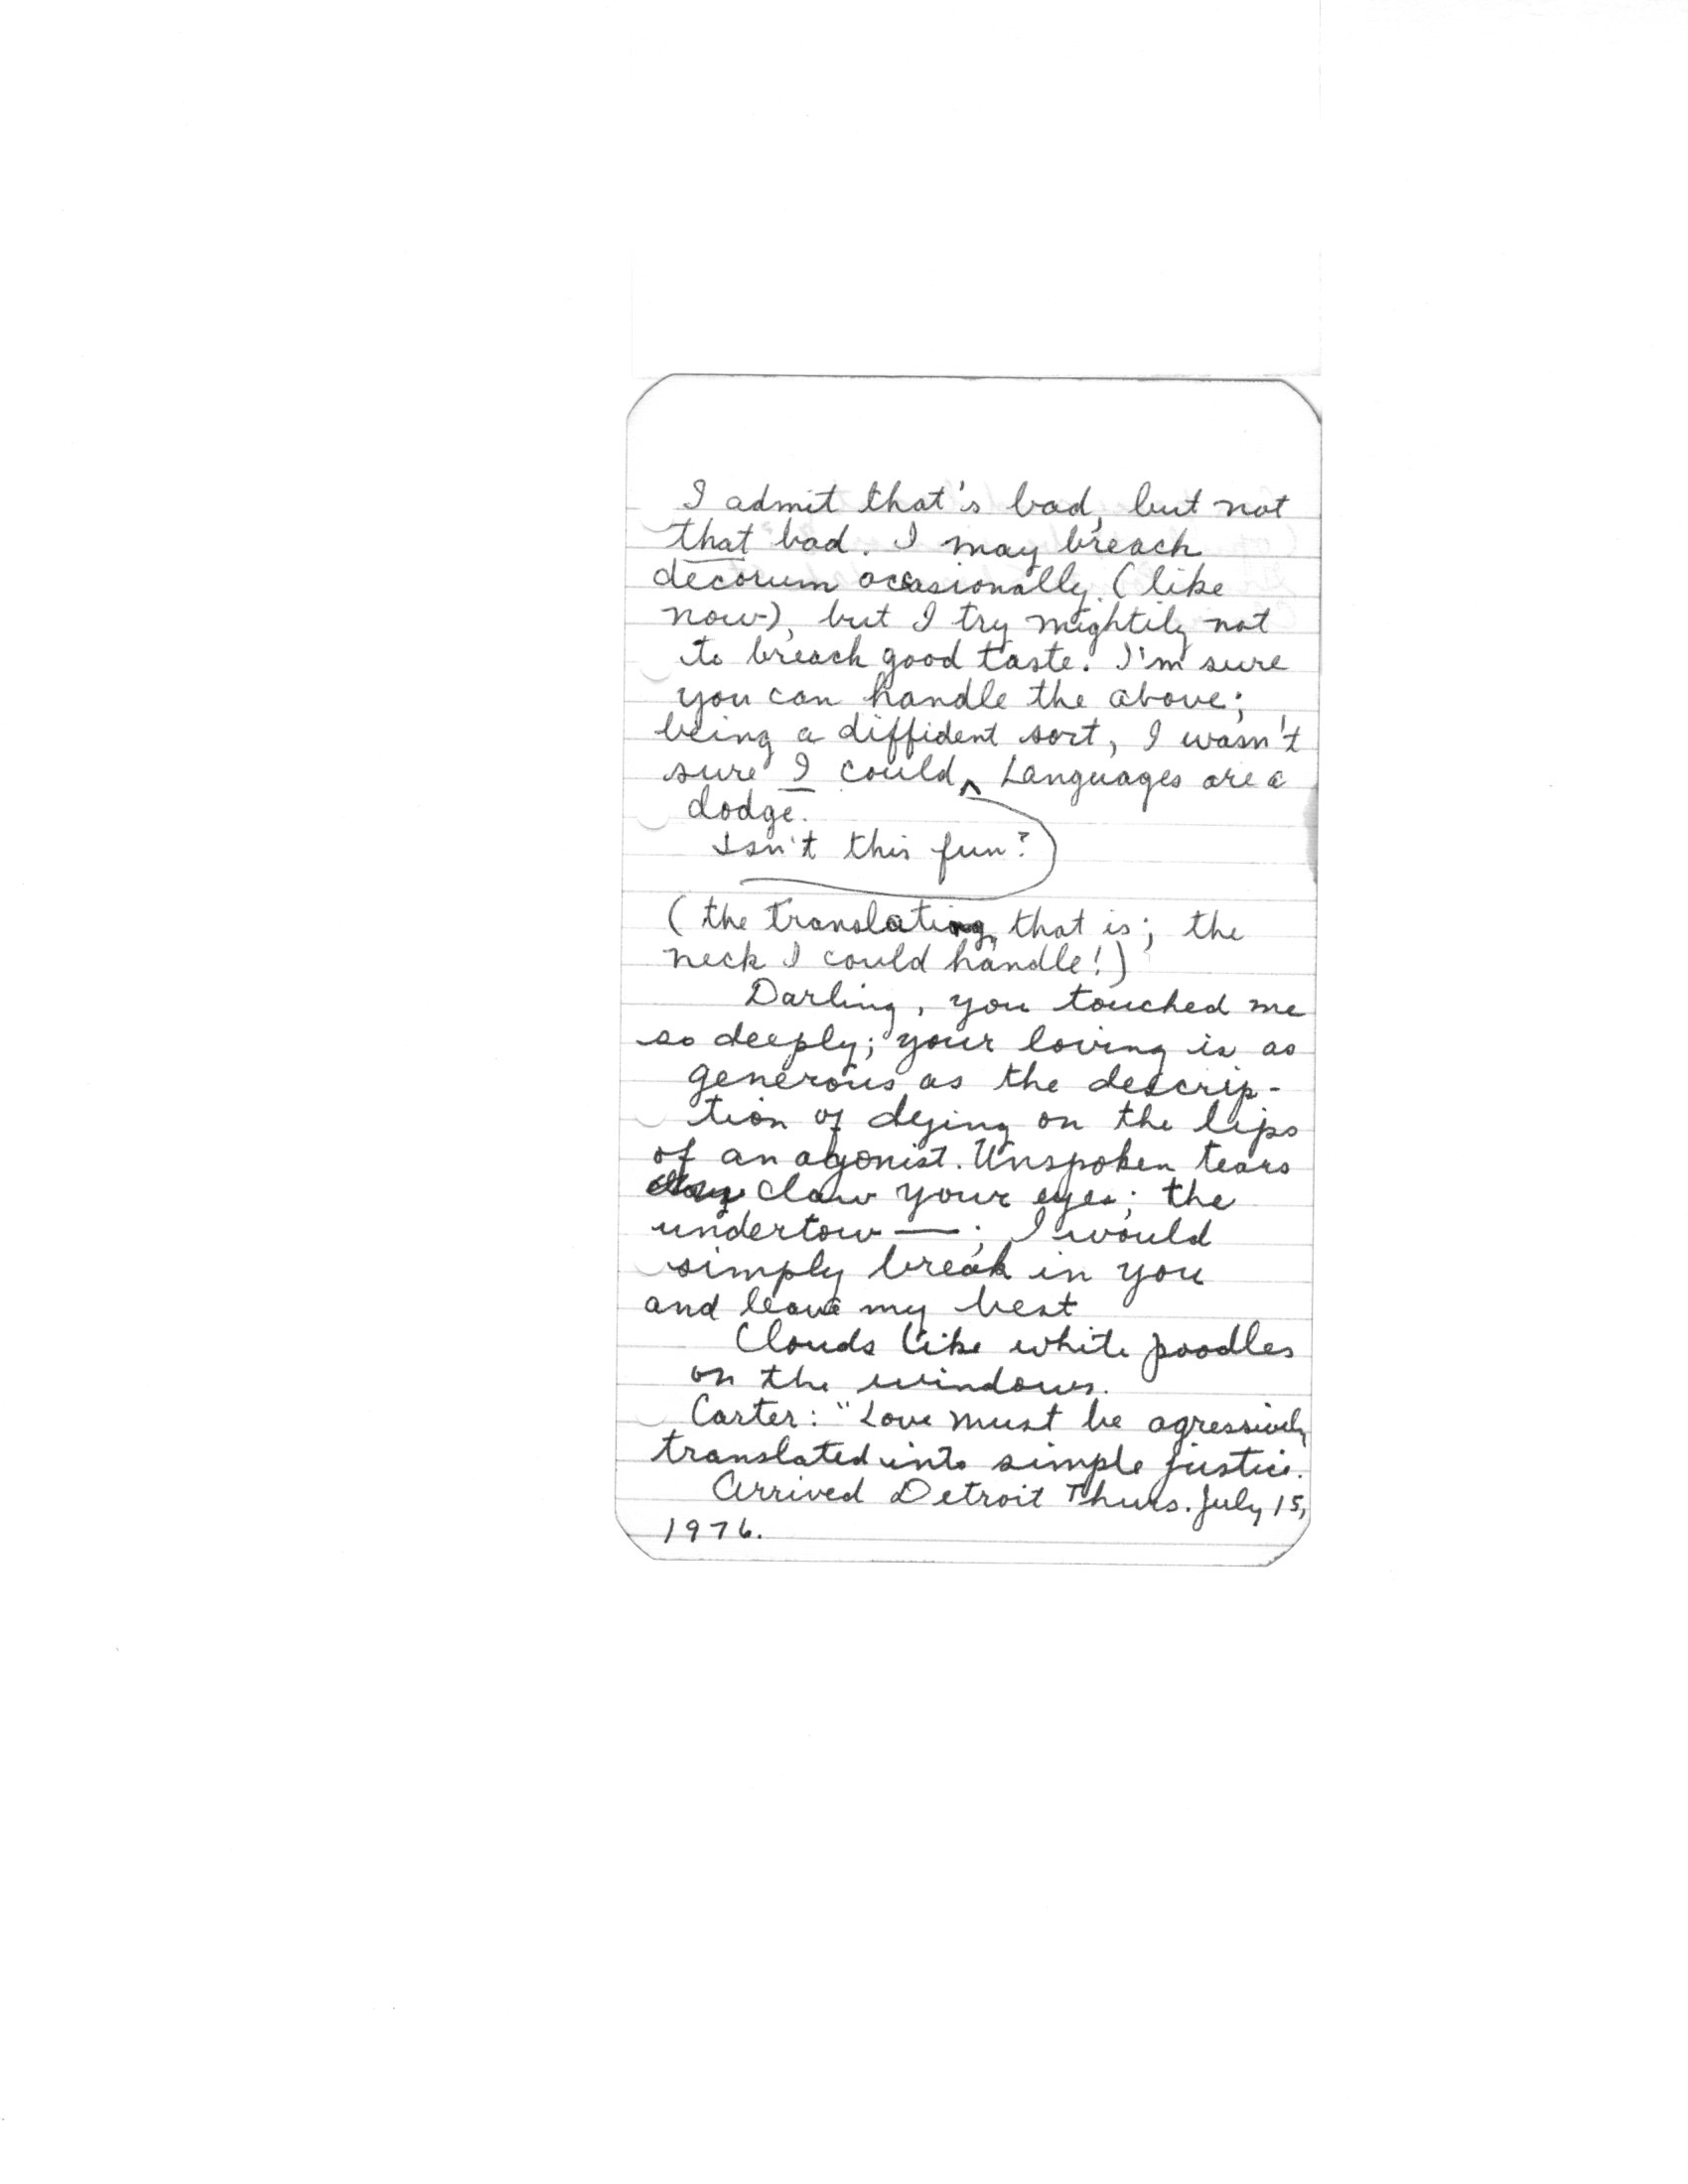 I admit that's bad, but not
that bad. I may breach
decorum ocasionally (like
now), but I try mightily not
to breach good taste. I'm sure
you can handle the above;
being a diffident sort, I wasn't
sure I could. Languages are a
dodge.
Isn't this fun?
(the translating, that is; the
neck I could handle!)
Darling, you touched me
so deeply; your loving is as
generous as the descrip-
tion of dying on the lips
of an agonist. Unspoken tears
claw your eyes; the
undertow —; I would
simply break in you
and leave my best
Clouds like white poodles
on the windows.
Carter: "Love must be agressively
translated into simple justice.
Arrived Detroit Thurs. July 15,
1976.